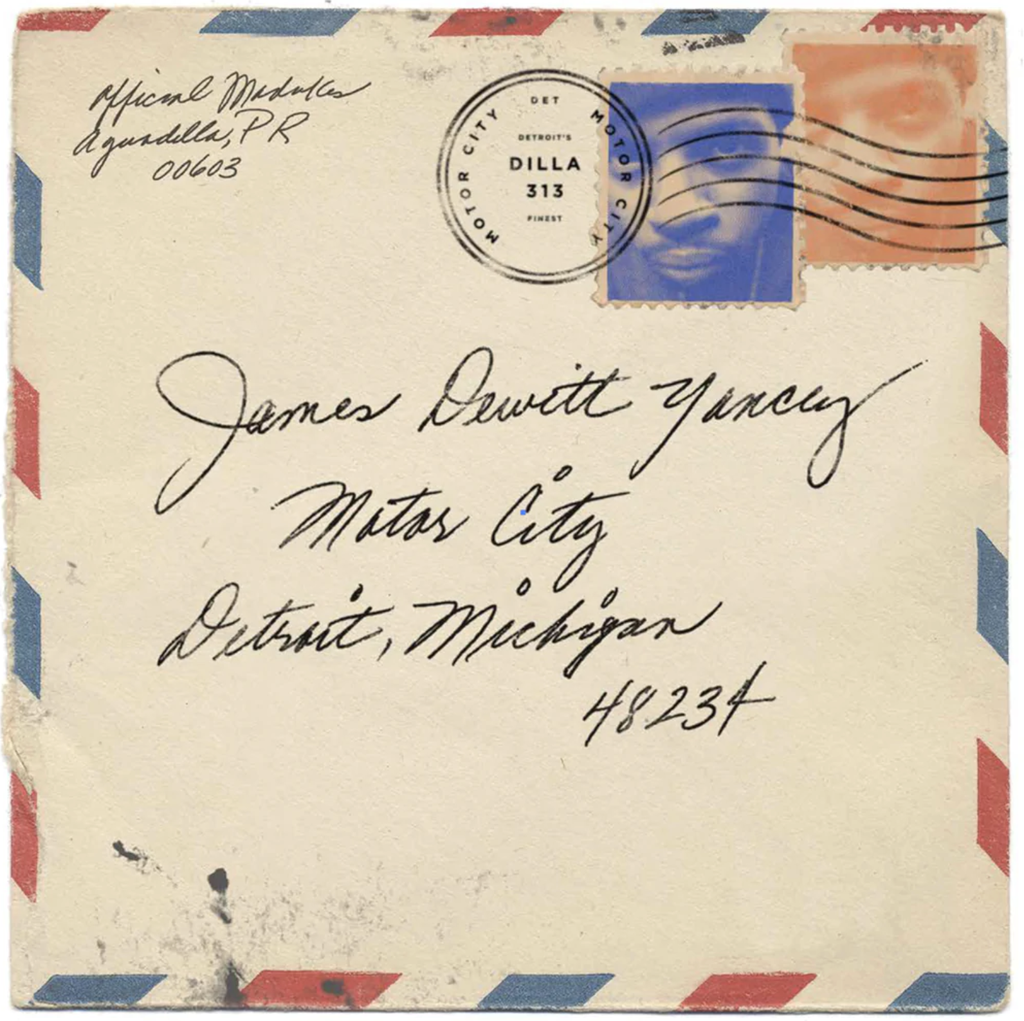 Official Madukes
Aguadilla, PR
00603
MOTOR CITY
DET
DETROIT'S
DILLA
313
FINEST
MOTOR CITY
James Dewitt Yancey
Motor City
Detroit, Michigan
48234